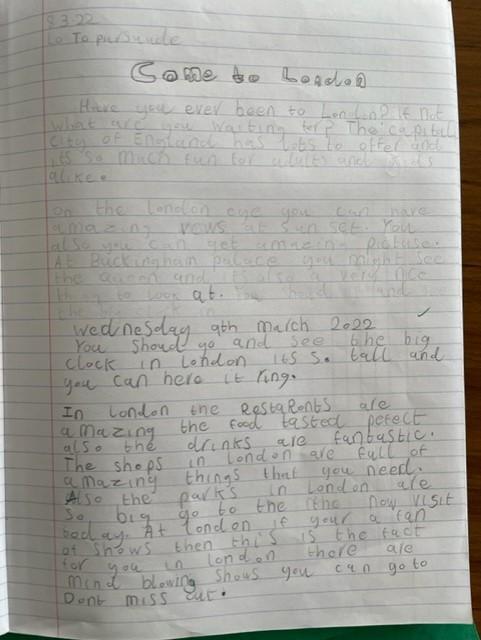 8.3.22
Lo To pursuade
Come to London
Have you ever been to London? if not
what are you waiting for? The capital
City of England has lots to offer and
its so much fun for adults and kids
alike.
on the London eye you can have
amazing vews at sun set. You
also you can get amazing pictuse.
At Buckingham palace you might see
the queen and its also a very nice
thing to look at. You should and see
the big clock in
Wednesday 9th march 2022
You shoud go and see the big
clock in london its so tall and
you can here it ring.
In London the RestaRonts are
amazing the food tasted pefect
also the drinks are fantastic.
The shops in london are full of
amazing things that you need.
Also the parks in London are
So big go to the the now visit
today. At london if your a fan
of shows then this is the fact
for you in london there are
mind blowing shows you can go to
Dont miss out.